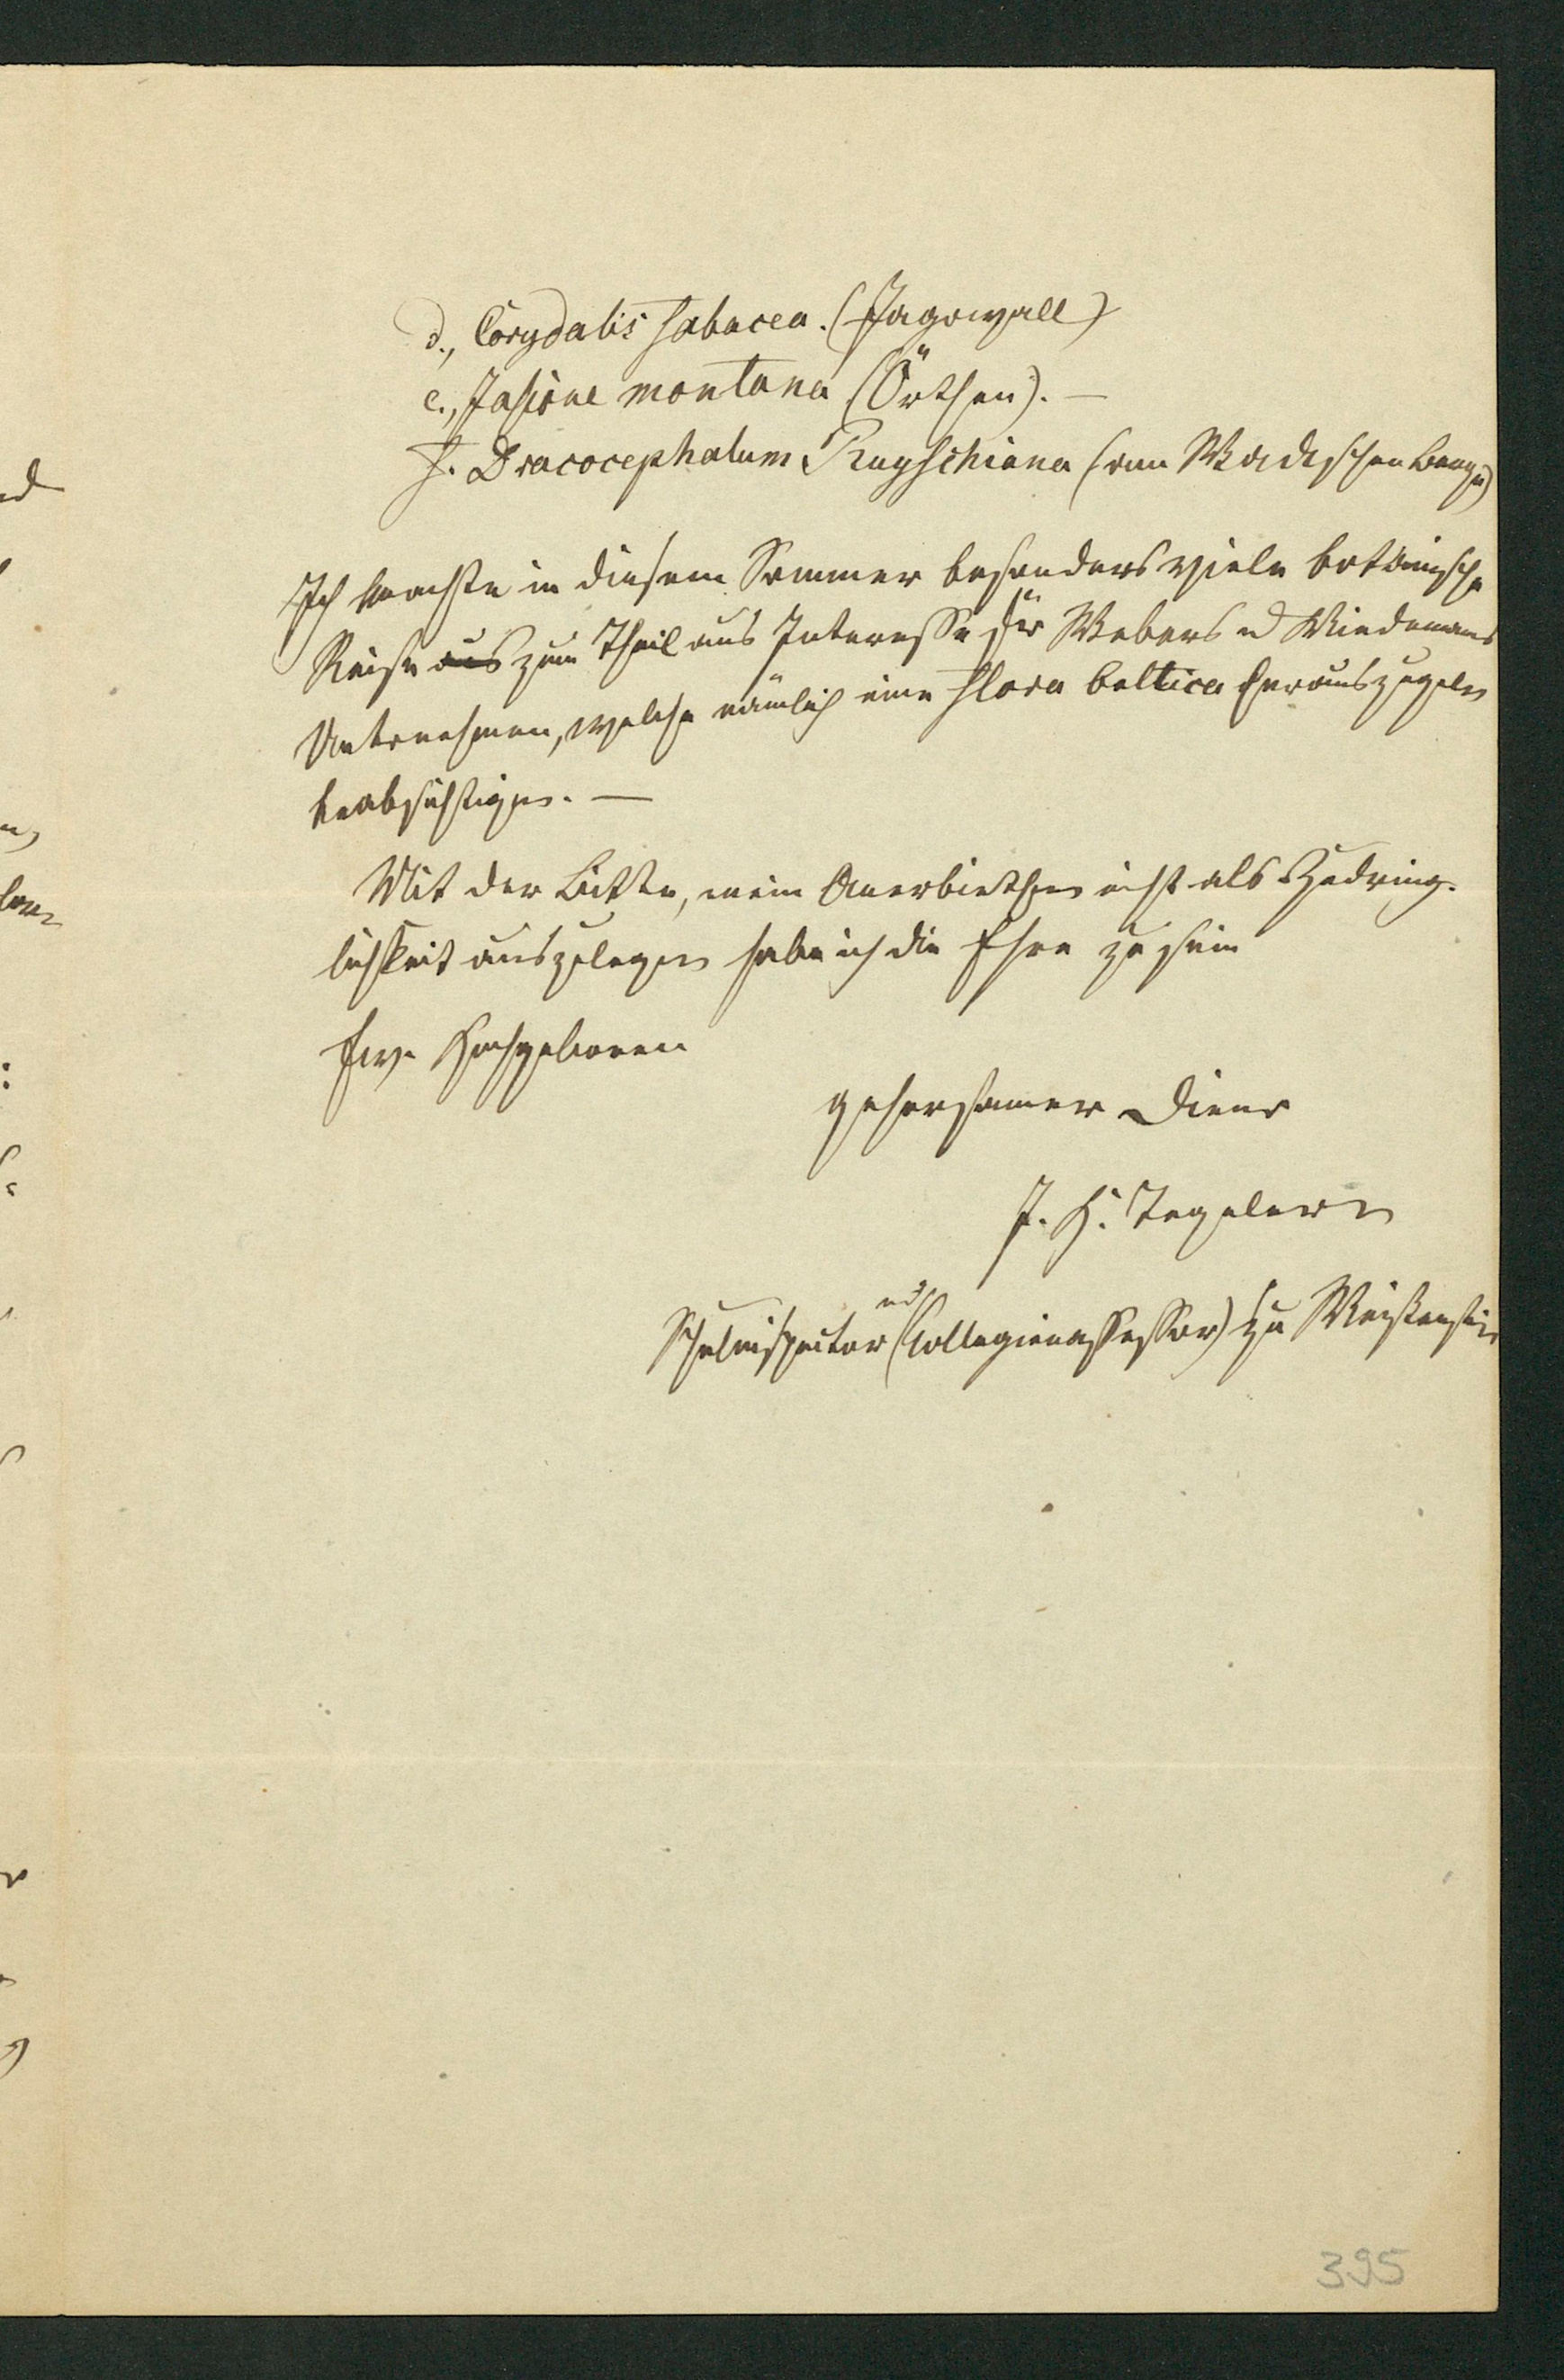 d., Corydalis fabacea. (Jagowall)
e., Jasione montana (Örthen). —
f. Dracocephalum Ruyschiana (am Madischen Berge)
Ich machte in diesem Sommer besonders viele botanische
Reise aus zum Theil aus Interesse für Webers u Wiedemans
Unternehmen, welche nämlich eine Flora baltica herauszugeben
beabsichtigen. —
Mit der Bitte, mein Anerbiethen nicht als Zudring-
lichkeit auszulegen habe ich die Ehre zu sein
Ew. Hochgeboren
gehorsamer Diener
J. H.
Schulinspector ud (Collegienassessor) zu Weißenstein
395